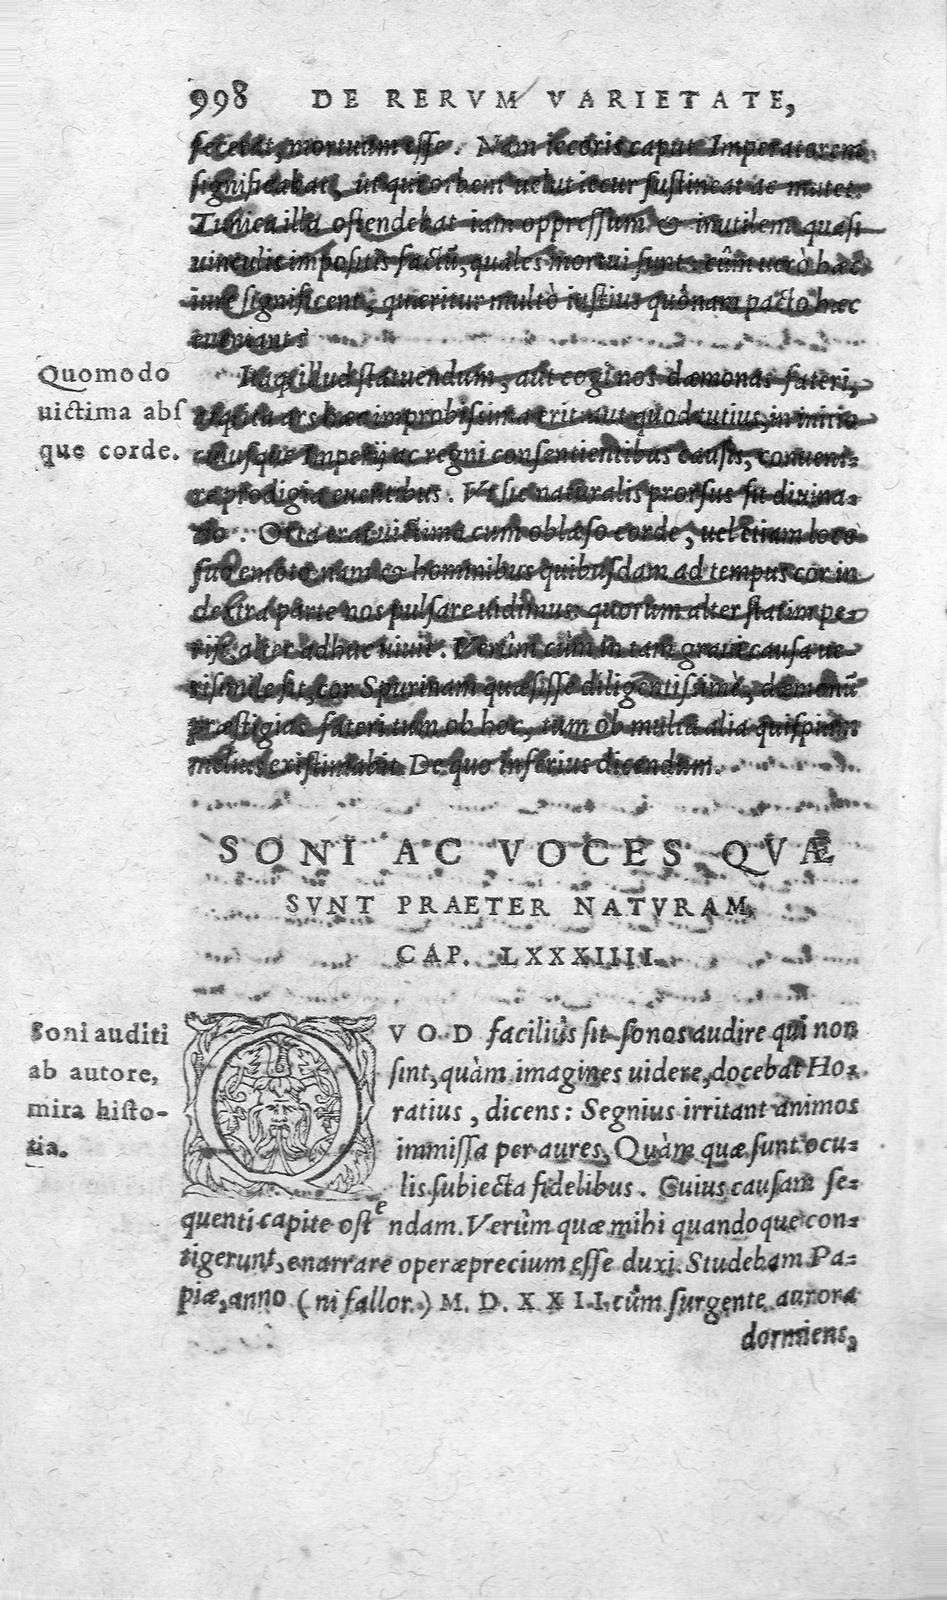 998 DE RERVM VARIETATE,
fecerat, mortuum eſſe. Nam iecoris caput Imperatorem
ſignificabat, ut qui orbem uelut iecur ſuſtineat ac mutet.
Tunica illa oſtendebat iam oppreſſum & inutilem quaſi
uinculis impoſitis factũ, quales mortui ſunt: cũm uerò hæc
iure ſignificent, quæritur multò iuſtius quònam pacto hæc
eueniant?
Quomodo
uictima abſ
que corde.
Itaq; illud ſtatuendum, aut cogi nos dæmonas fateri,
ars hæc improbiſſima erit: aut quod tutius, in initio
cuiuſque Imperij ac regni conſentientibus cauſis, conueni-
re prodigia euentibus. Vt ſic naturalis prorſus ſit diuina-
tio. Orta erat uictima cum oblæſo corde, uel etiam loco
ſuo emoto nam & hominibus quibuſdam ad tempus cor in
dextra parte nos pulſare uidimus: quorum alter ſtatim pe-
rijt, alter adhuc uiuit. Verûm cùm in tam graui cauſa ue-
riſimile ſit, cor Spurinam quæſiſſe diligentiſſimè, dæmonũ
præſtigias fateri tum ob hoc, tum ob multa alia quiſpiam
melius exiſtimabit. De quo inferius dicendum.
SONI AC VOCES QVÆ
SVNT PRAETER NATVRAM,
CAP. LXXXIIII.
Soni auditi
ab autore,
mira hiſto-
ria.
QVOD facilius ſit ſonos audire qui non
ſint, quàm imagines uidere, docebat Ho-
ratius, dicens: Segnius irritant animos
immiſſa per aures, Quàm quæ ſunt ocu-
lis ſubiecta fidelibus. Cuius cauſam ſe-
quenti capite oſtendam. Verûm quæ mihi quandoque con-
tigerunt, enarrare operæprecium eſſe duxi. Studebam Pa-
piæ, anno (ni fallor) M. D. XXII. cûm ſurgente aurora
dormiens,